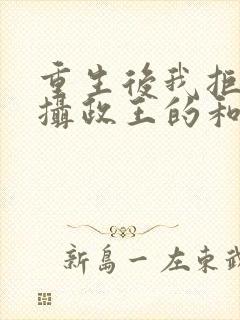 重生後我拒
攝政王的和
新島一左東武